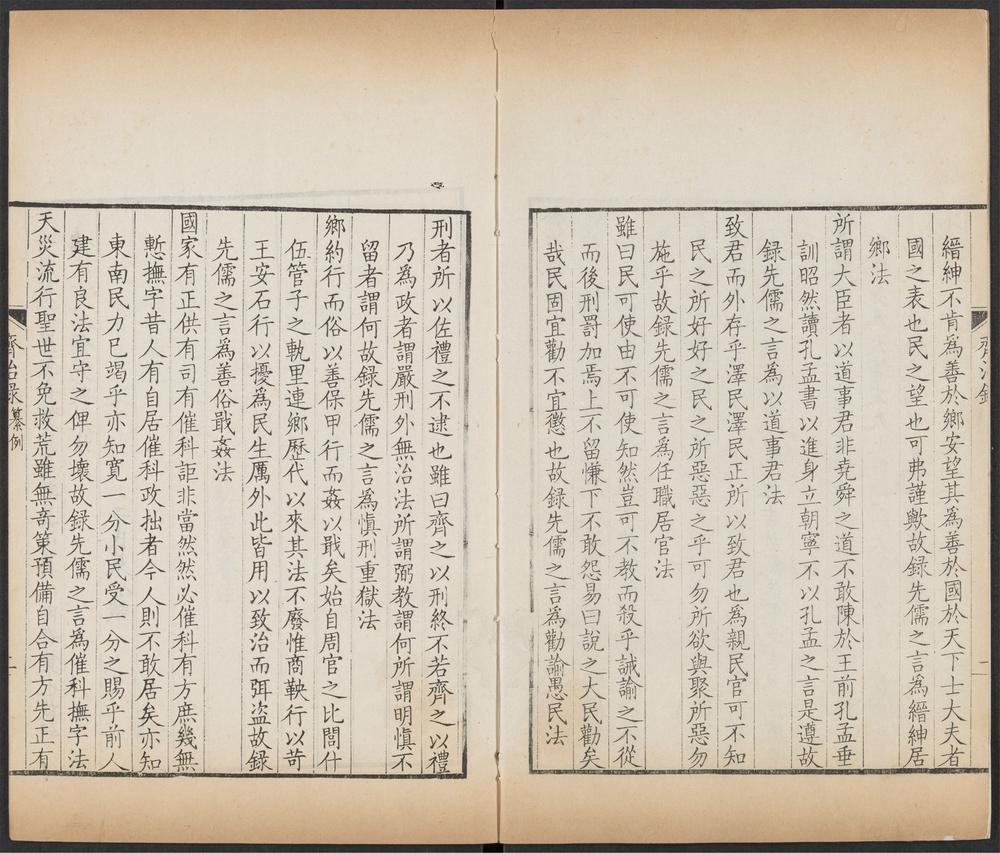 縉紳不肯為善於鄉安望其為善於國於天下士大夫者
國之表也民之望也可弗謹歟故録先儒之言為縉紳居
鄉法
所謂大臣者以道事君非堯舜之道不敢陳於王前孔孟垂
訓昭然讀孔孟書以進身立朝寧不以孔孟之言是遵故
録先儒之言為以道事君法
致君而外存乎澤民澤民正所以致君也為親民官可不知
民之所好好之民之所惡惡之乎可勿所欲與聚所惡勿
施乎故録先儒之言為任職居官法
雖曰民可使由不可使知然豈可不教而殺乎誡諭之不從
而後刑罰加焉上不留慊下不敢怨易曰說之大民勸矣
哉民固宜勸不宜懲也故録先儒之言為勸諭愚民法
刑者所以佐禮之不逮也雖曰齊之以刑終不若齊之以禮
乃為政者謂嚴刑外無治法所謂弼教謂何所謂明慎不
留者謂何故録先儒之言為慎刑重獄法
鄉約行而俗以善保甲行而姦以戢矣始自周官之比閭什
伍管子之軌里連鄉歷代以來其法不廢惟商鞅行以苛
王安石行以擾為民生厲外此皆用以致治而弭盜故録
先儒之言為善俗戢姦法
國家有正供有司有催科詎非當然然必催科有方庶幾無
慙撫字昔人有自居催科政拙者今人則不敢居矣亦知
東南民力已竭乎亦知寬一分小民受一分之賜乎前人
建有良法宜守之俾勿壞故録先儒之言為催科撫字法
天災流行聖世不免救荒雖無奇策預備自合有方先正有
齊治録 纂例